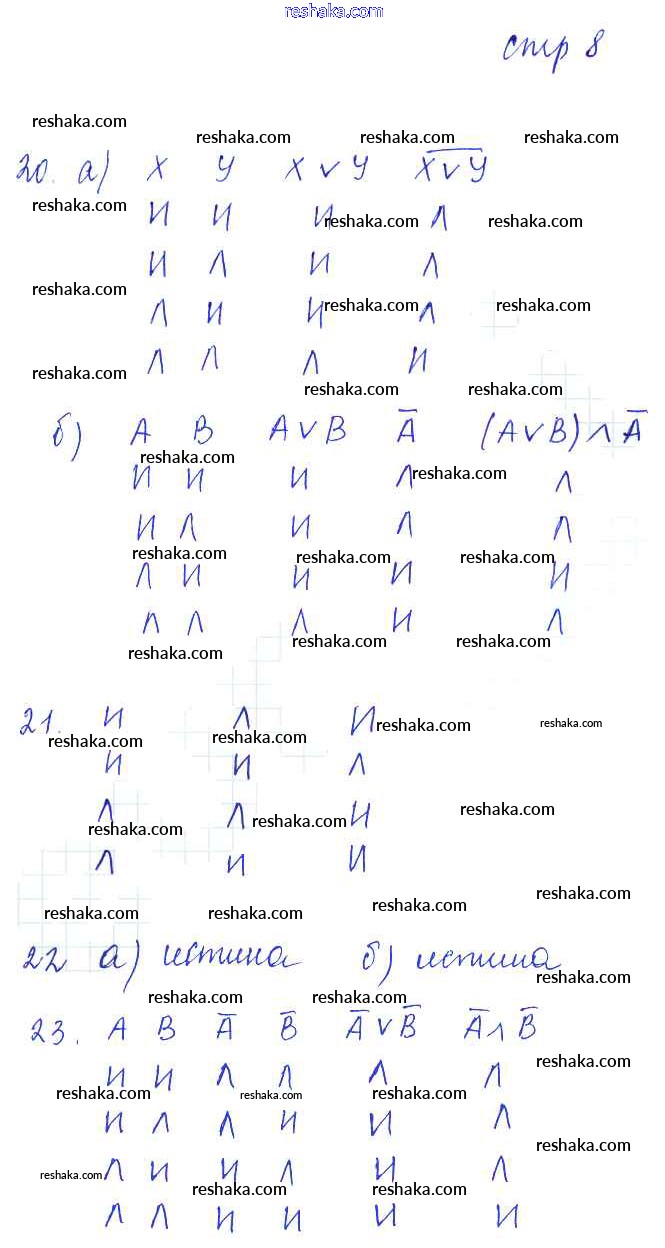 reshaka.com
стр 8
reshaka.com
reshaka.com reshaka.com reshaka.com
20. а) X У X ∨ У X̅ ̅∨̅ ̅У̅
reshaka.com
И И И Л
reshaka.com reshaka.com
И Л И Л
reshaka.com
Л И И Л
reshaka.com reshaka.com
Л Л Л И
reshaka.com
reshaka.com reshaka.com
б) A B A ∨ B A̅ (A ∨ B) ∧ A̅
reshaka.com
И И И Л Л
reshaka.com
И Л И Л Л
reshaka.com reshaka.com reshaka.com
Л И И И И
Л Л Л И Л
reshaka.com reshaka.com reshaka.com
21. И Л И
reshaka.com reshaka.com
reshaka.com reshaka.com
И И Л
Л Л И
reshaka.com
reshaka.com reshaka.com
Л И И
reshaka.com
reshaka.com reshaka.com reshaka.com
22 а) истина б) истина
reshaka.com
reshaka.com reshaka.com
23. A B A̅ B̅ A̅ ∨ B̅ A̅ ∧ B̅
reshaka.com
И И Л Л Л Л
reshaka.com reshaka.com reshaka.com
И Л Л И И Л
reshaka.com
Л И И Л И Л
reshaka.com
reshaka.com reshaka.com
Л Л И И И И